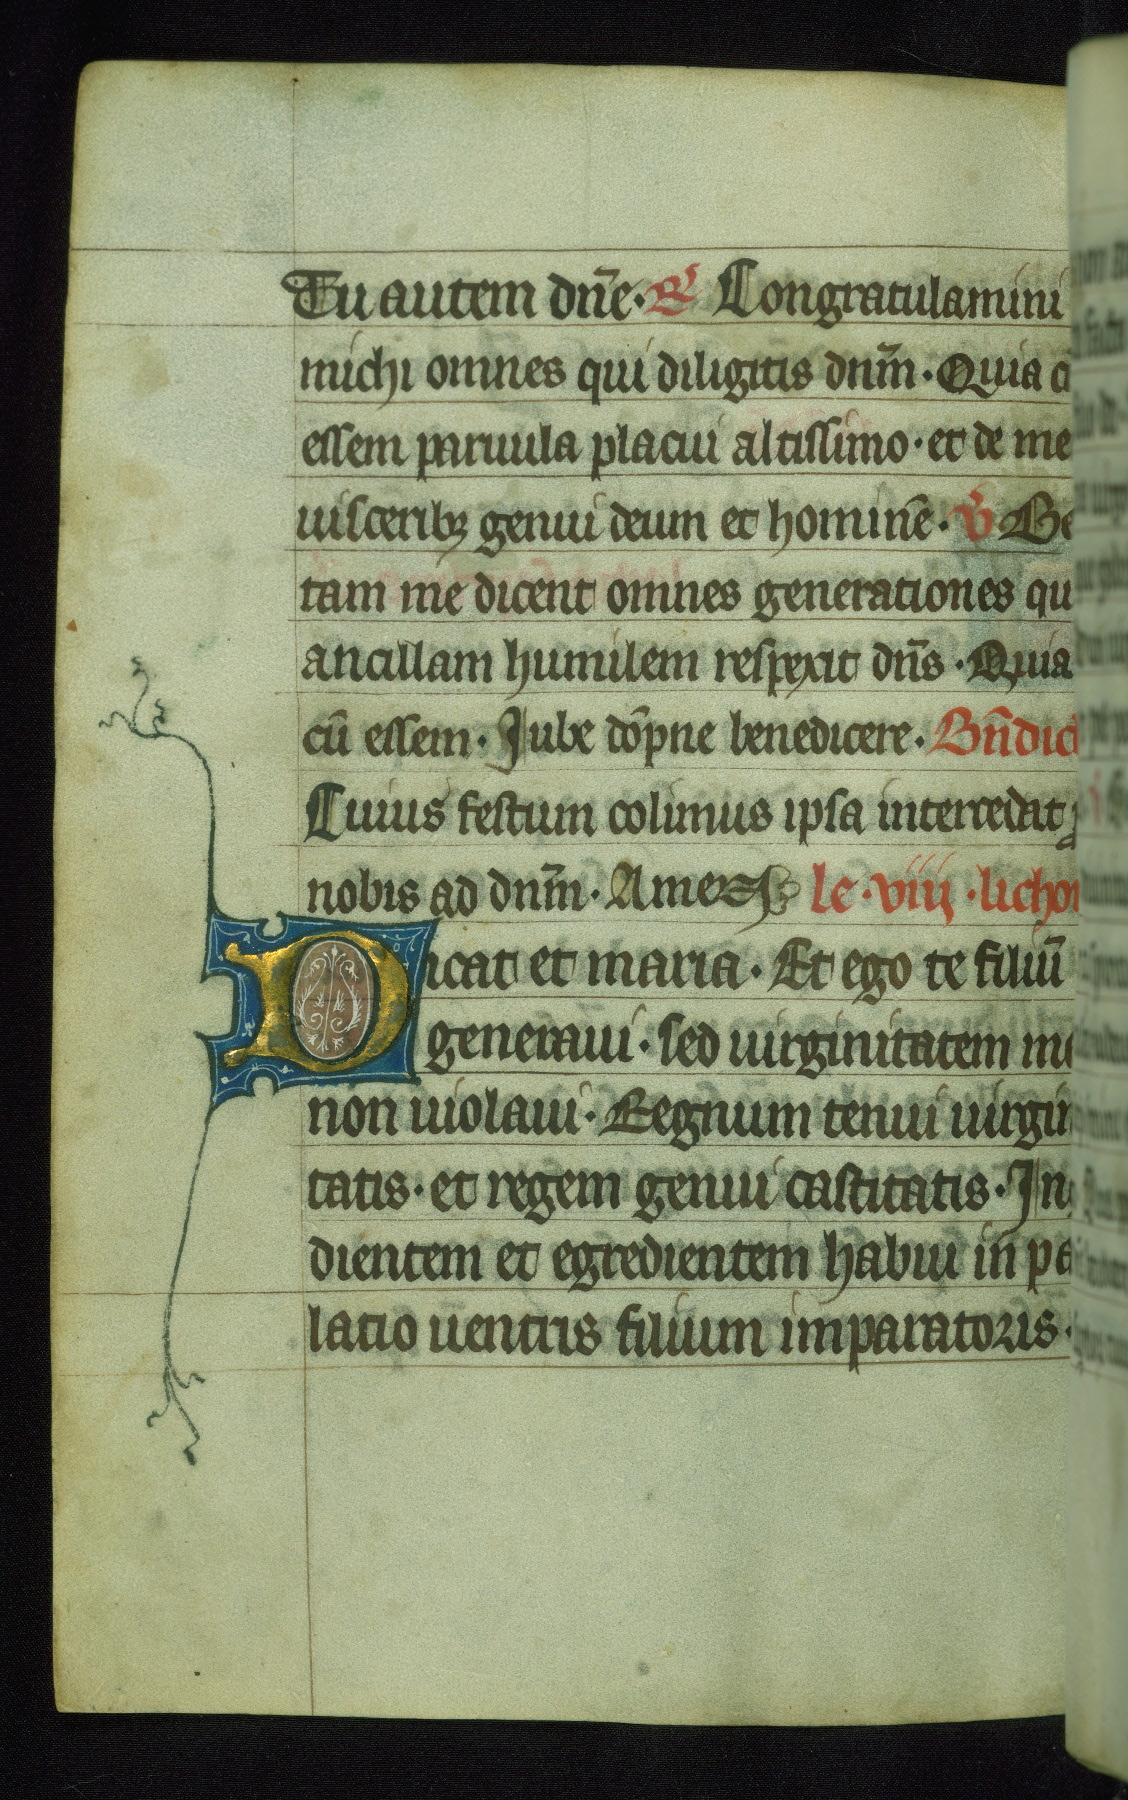 Tu autem dn̄e · R̷ Congratulamini
michi omnes qui diligitis dnm̄ · Quia
essem paruula placui altissimo · et de me
uisceribꝫ genui deum et hominē · V̷ Be
tam me dicent omnes generationes qu
ancillam humilem respexit dn̄s · Quia
cū essem · Jube dōpne benedicere · Bn̄dic
Cuius festum colimus ipsa intercedat
nobis ad dnm̄ · Amen le · viiij ·
Dicat et maria · Et ego te filiū
generaui · sed uirginitatem me
non uiolaui · Regnum tenui uirgin
tatis · et regem genui castitatis · In
dientem et egredientem habui in pa
latio uentris filium imparatoris ·